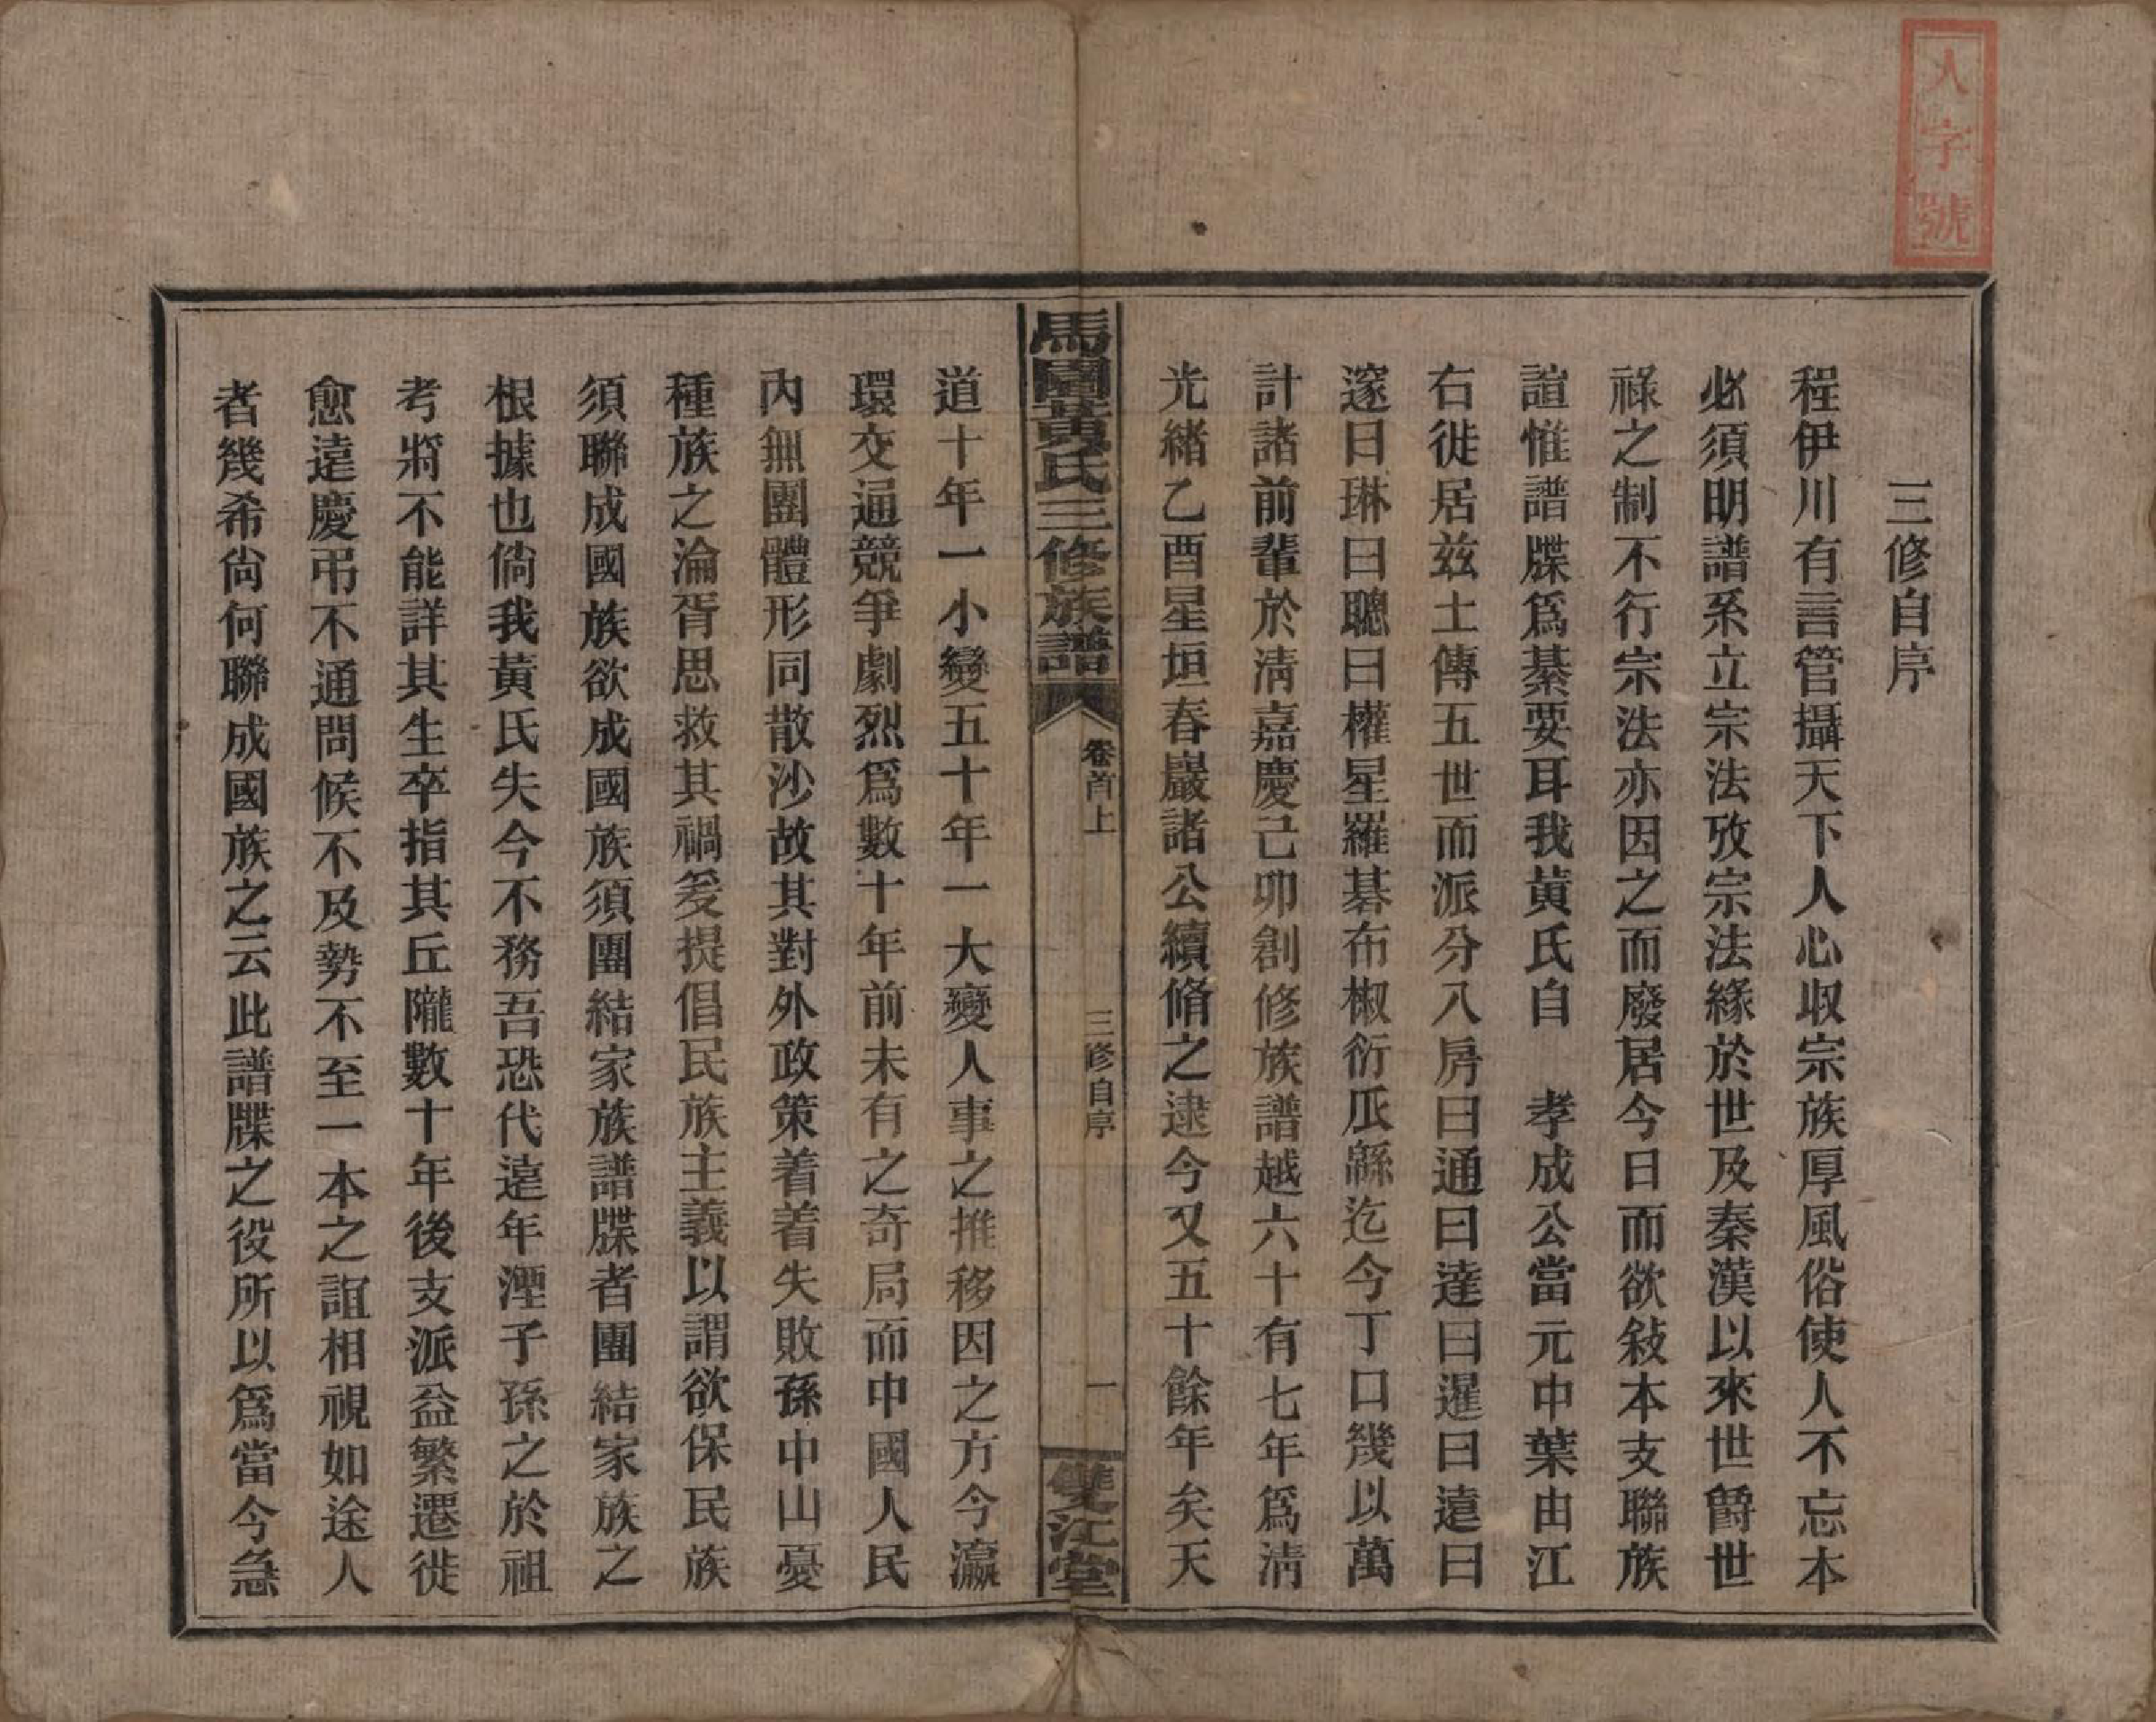 人字號
三修自序
程伊川有言管攝天下人心収宗族厚風俗使人不忘本
必須明譜系立宗法攷宗法緣於世及秦漢以來世爵世
祿之制不行宗法亦因之而廢居今日而欲敍本支聯族
誼惟譜牒爲綦要耳我黄氏自　孝成公當元中葉由江
右徙居兹土傳五世而派分入房曰通曰達曰暹曰遠曰
邃曰琳曰聰曰權星羅碁布椒衍瓜緜迄今丁口幾以萬
計諸前輩於淸嘉慶己卯創修族譜越六十有七年爲淸
光緒乙酉星垣春巖諸公續脩之逮今又五十餘年矣天
馬園黃氏三修族譜
卷首上
三修自序
一
雙江堂
道十年一小變五十年一大變人事之推移因之方今瀛
環交通競爭劇烈爲數十年前未有之奇局而中國人民
內無團體形同散沙故其對外政策着着失敗孫中山憂
種族之淪胥思救其禍爰提倡民族主義以謂欲保民族
須聯成國族欲成國族須團結家族譜牒者團結家族之
根據也倘我黃氏失今不務吾恐代遠年湮子孫之於祖
考將不能詳其生卒指其丘隴數十年後支派益繁遷徙
愈遠慶弔不通問候不及勢不至一本之誼相視如途人
者幾希尙何聯成國族之云此譜牒之役所以爲當今急